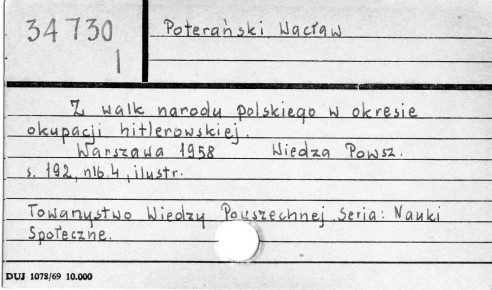 34730
I
Poterański Wacław
Z walk narodu polskiego w okresie
okupacji hitlerowskiej.
Warszawa 1958 Wiedza Powsz.
s. 192, nlb. 4, ilustr.
Towarzystwo Wiedzy Powszechnej. Seria: Nauki
Społeczne.
DUJ 1078/69 10.000